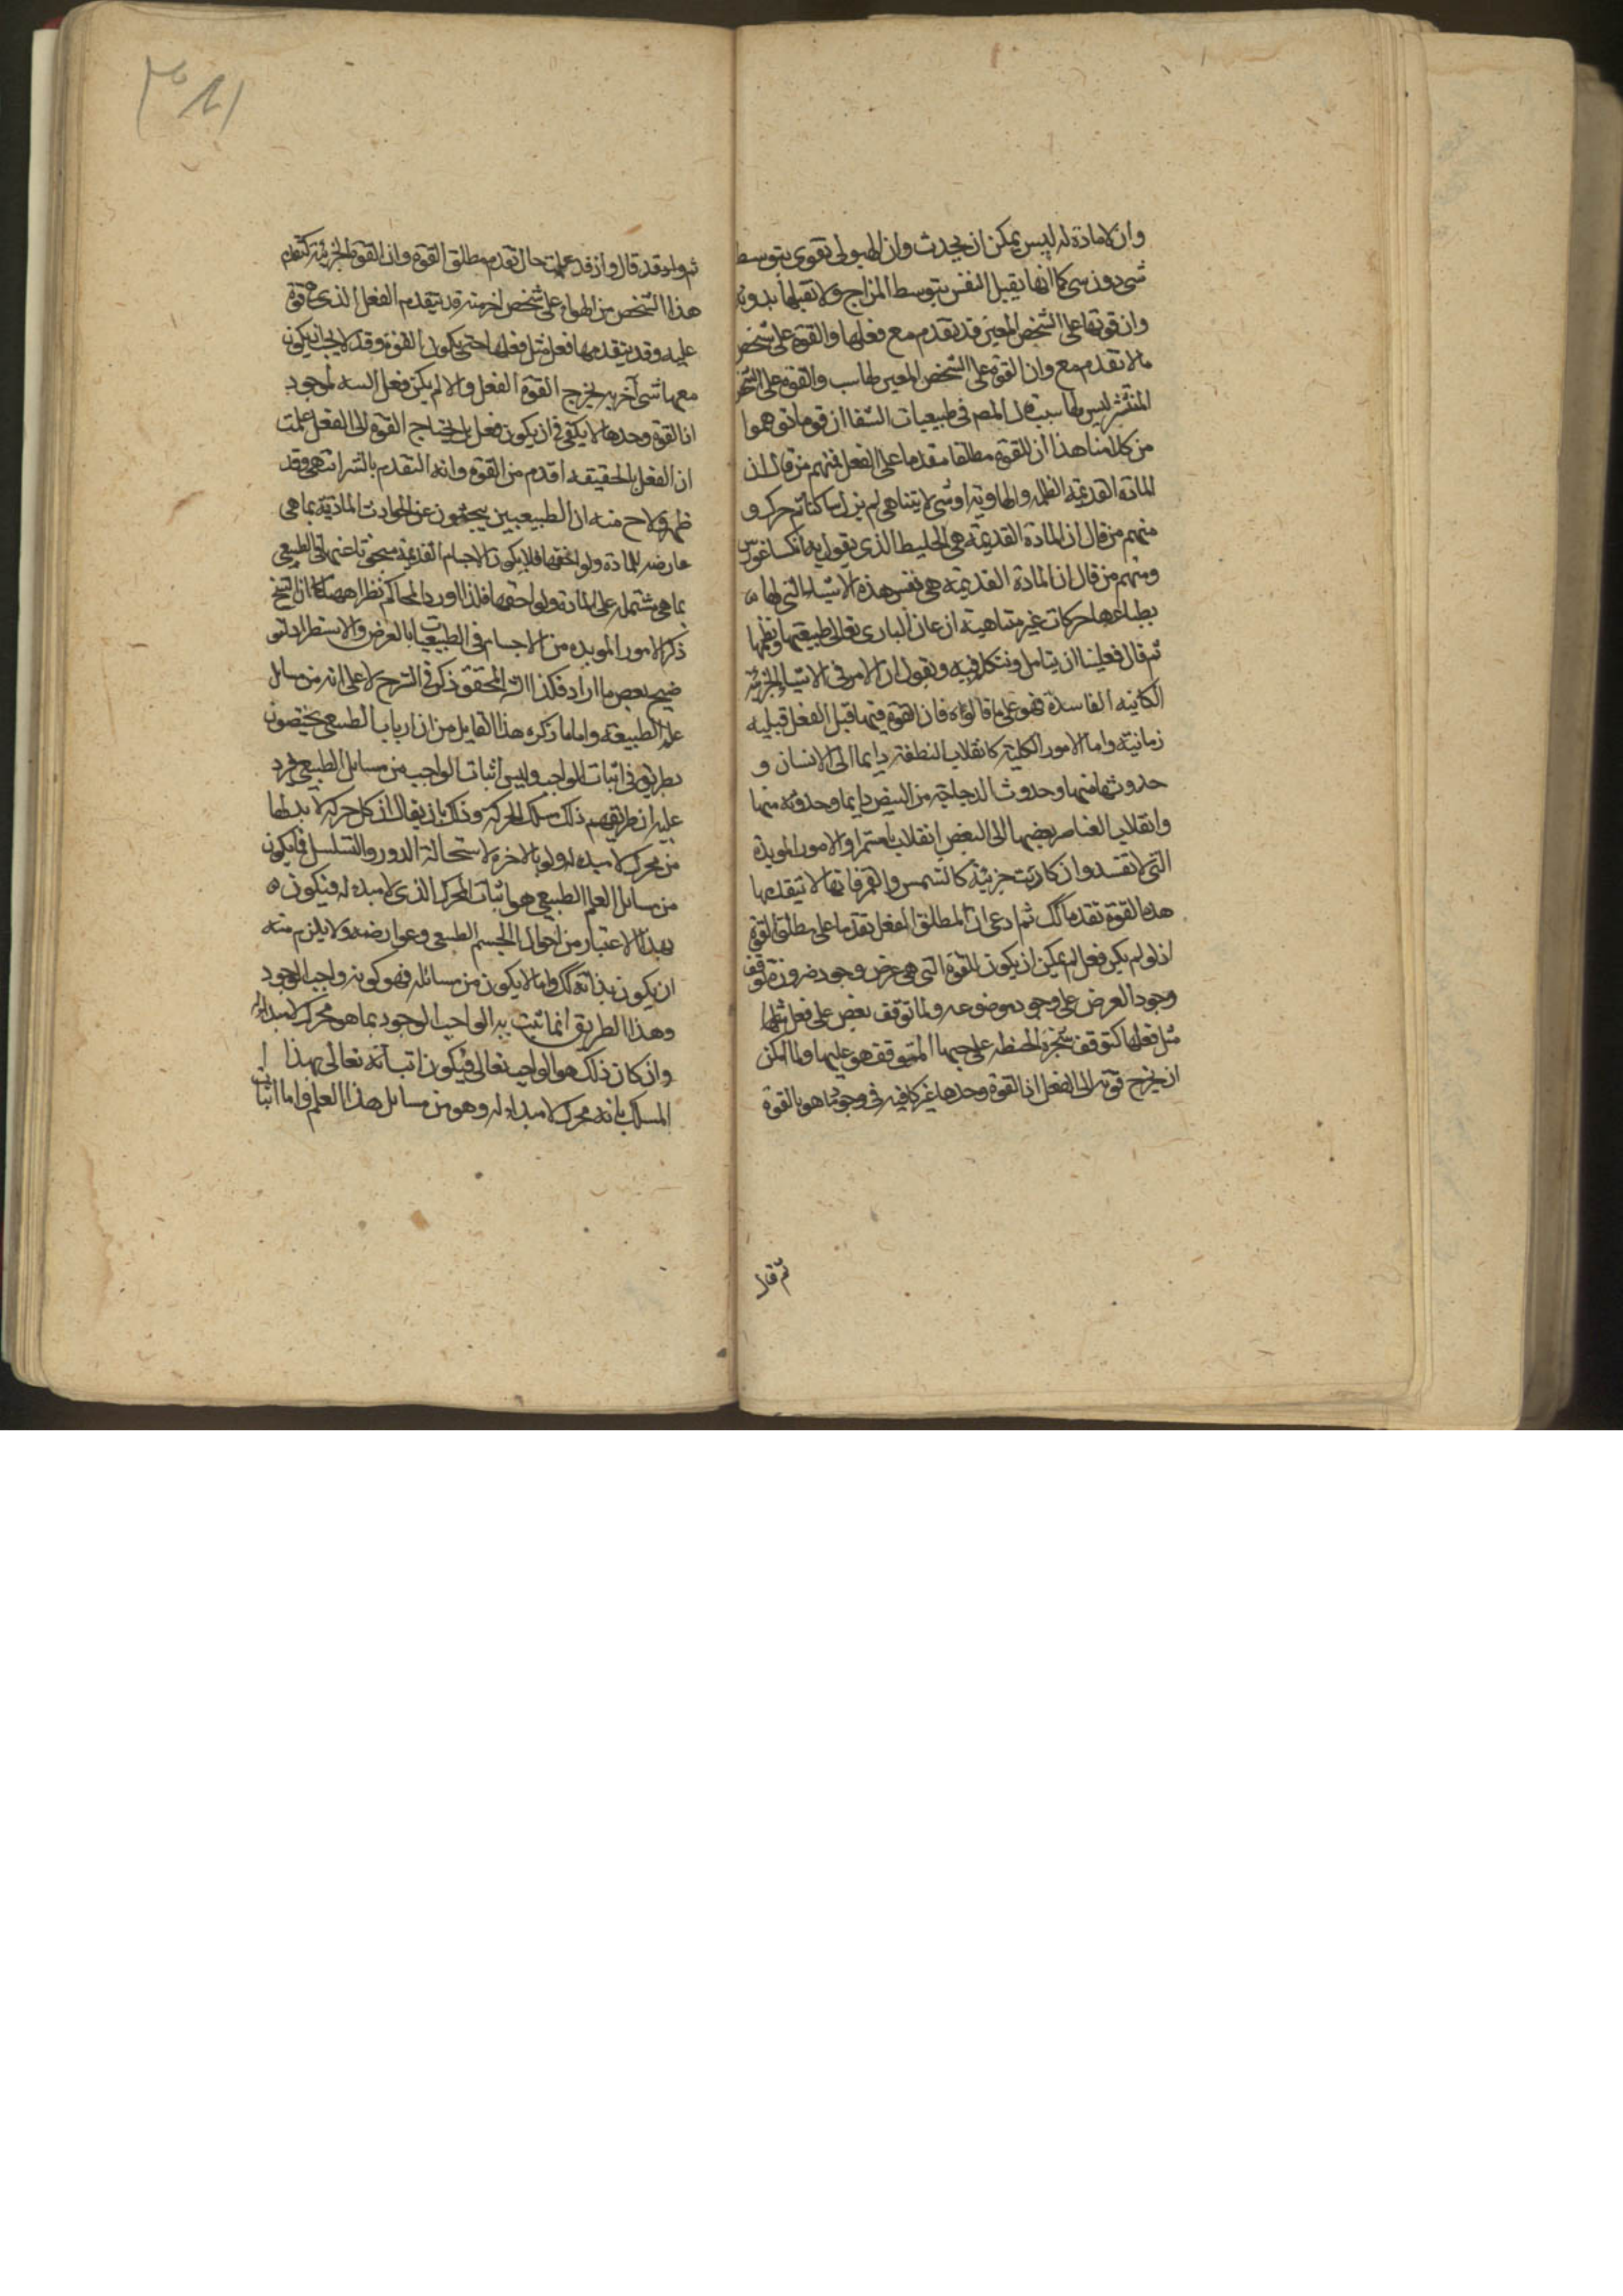 وان لامادة له ليس يمكن ان يحدث وان الهيولى تقوى بتوسط
شى دون شى كما انها يقبل النفس بتوسط المزاج ولا تقبلها بدونه
وان قوتها على الشخص المعين قد تقدم مع فعلها والقوة على شخص
ما لا تقدم مع وان القوة على الشخص المعين لها سب والقوة على الشخص
المنتشر ليس لها سبب قال المصر فى طبيعيات الشفا ان قوما توهموا
من كلامنا هذا ان للقوة مطلقا مقدما على الفعل فمنهم من قال ان
المادة القديمة الظلمه والهاوية او شى لا يتناهى لم يزل ساكنا ثم حرك و
منهم من قال ان المادة القديمة هى الخليط الذى يقول به انكساغورس
ومنهم من قال ان المادة القديمه هى نفس هذه الاشياء التى لها
بطباعها حركات غير متناهية ان عان البارى تعالى طبيعتها ونظمها
ثم قال فعلينا ان يتامل ونتكلم فيه ونقول ان الامر فى الاشياء الجزئيه
الكائنه الفاسدة فهو على ما قالوه فان القوة فيها قبل الفعل قبليه
زمانية واما الامور الكلية كانقلاب النطفة دايما الى الانسان و
حدوثها منها وحدوث الدجاجة من البيض دايما وحدوثه منها
وانقلاب العناصر بعضها الى البعض انقلابا مستمرا والامور الموبدة
التى لا تفسد وان كانت جزئية كالشمس والقمر فانها لا تيقدمها
هذه القوة تقدما كك ثم ادعى ان لمطلق الفعل تقدما على مطلق القوة
اذ لو لم يكن فعل لم يمكن ان يكون القوة التى هى عرض وجود ضرورة توقف
وجود العرض على وجود موضوعه ولما توقف بعض على فعل مثلها
مثل فعلها كتوقف شجرة الحنطه على حبها المتوقف هو عليها ولما امكن
ان يخرج قوته الى الفعل اذ القوة وحدها غير كافيه فى وجود ما هو بالقوة
ثم قال
ثم ولاد قد قال واذ قد علمت حال تقدم مطلق القوة وان القوة الجزئية كتقدم
هذا الشخص من الهواء على شخص اخر منه قد يتقدم الفعل الذى هو قوة
عليه وقد يتقدمها فعل مثل فعلها حتى يكون القوة وقد لا يجب ان يكون
معها شى آخر به يخرج القوة الفعل والا لم يكن فعل البته لموجود
اذ القوة وحدها لا يكفى فى ان يكون فعل بل يحتاج القوة الى الفعل علمت
ان الفعل بالحقيقه اقدم من القوة وانه المتقدم بالشرف انتهى وقد
ظهر ولاح منه ان الطبيعيين يبحثون عن الحوادث المادية بما هى
عارضه للمادة ولواحقها فلا يكون الاجسام القديمة مبحوثا عنها فى الطبيعى
بما هى مشتمله على المادة ولواحقها فلذا اورد المحاكم نظرا ههنا كما ان الشيخ
ذكر الامور الموبده من الاجسام فى الطبيعيات بالعرض والاستطراد لتو
ضيح بعض ما اراد فكذا الشر المحقق ذكره فى الشرح لا على انه من مسايل
علم الطبيعه واما ما ذكره هذا القايل من ان ارباب الطبيعى يختصون
بطريق فى اثبات الواجب وليس اثبات الواجب من مسايل الطبيعى فيرد
عليه ان طريقهم ذلك مسلك الحركة وذلك بان يقال ان كل حركة لا بد لها
من محرك لا مبده له ولو بالاخره لاستحالة الدور والتسلسل فما يكون
من مسايل العلم الطبيعى هو اثبات المحرك الذى لا مبده له فيكون
بهذا الاعتبار من احوال الجسم الطبيعى وعوارضه ولا يلزم منه
ان يكون بذاته كك واما لا يكون من مسائله فهو كونه واجب الوجود
وهذا الطريق انما ثبت به الواجب الوجود بما هو محرك لا مبدا له
وان كان ذلك هو الواجب تعالى فيكون اثباته تعالى بهذا
المسلك بانه محرك لا مبداء له وهو من مسايل هذا العلم واما اثبات